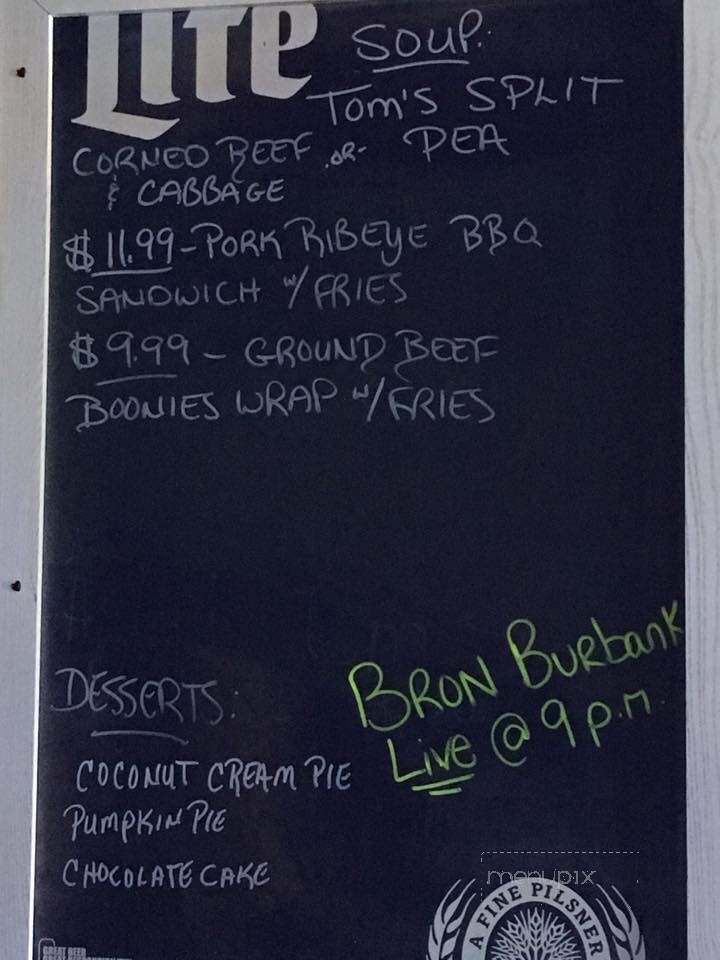 Lite
SOUP:
TOM'S SPLIT
PEA
CORNED BEEF -OR-
& CABBAGE
$11.99-PORK RIBEYE BBQ
SANDWICH W/FRIES
$9.99 - GROUND BEEF
BOONIES WRAP W/FRIES
BRON Burbank
Live @ 9 p.m.
DESSERTS:
COCONUT CREAM PIE
PUMPKIN PIE
CHOCOLATE CAKE
menupix
A FINE PILSNER
GREAT BEER